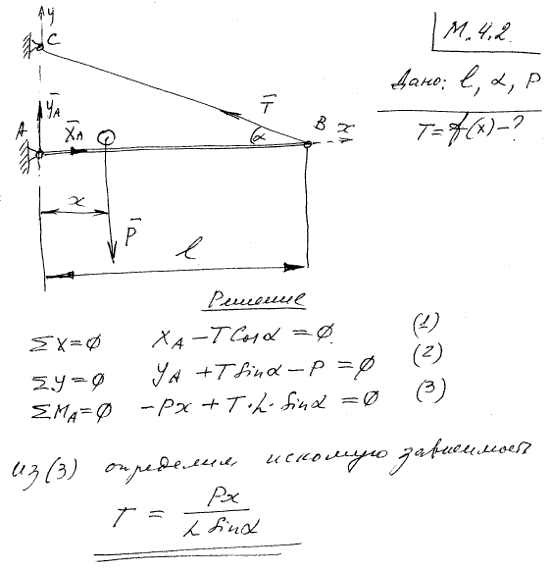 М.4.2.
Дано: l, α, P
T=f(x)-?
y
C
ȲA
T̄
A
X̄A
α
B
x
x
P̄
l
Решение
ΣX=0 XA - T Cosα = 0. (1)
ΣY=0 YA + T Sinα - P = 0 (2)
ΣMA=0 -Px + T·L·Sinα = 0 (3)
из (3) определим искомую зависимость
T = Px / L Sinα